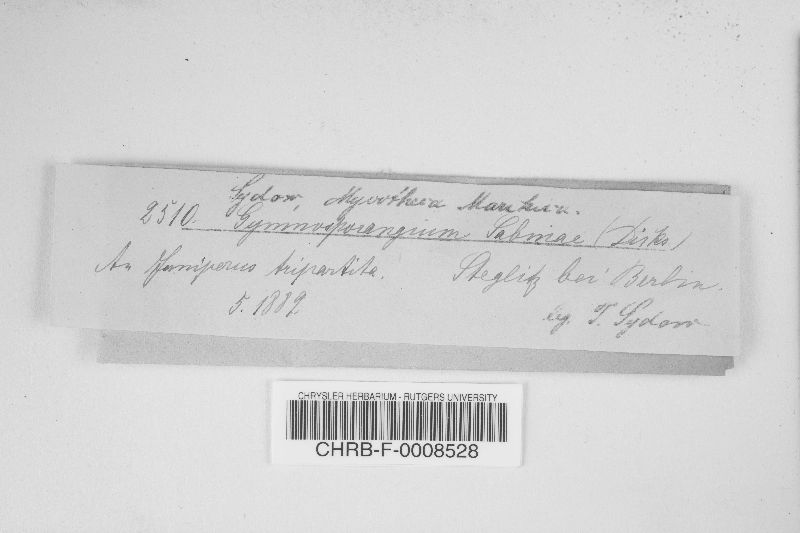 Sydow, Mycotheca Marchica.
2510. Gymnosporangium Sabinae (Dicks)
An Juniperus tripartita. Steglitz bei Berlin.
5. 1889. leg. P. Sydow
CHRYSLER HERBARIUM - RUTGERS UNIVERSITY
CHRB-F-0008528